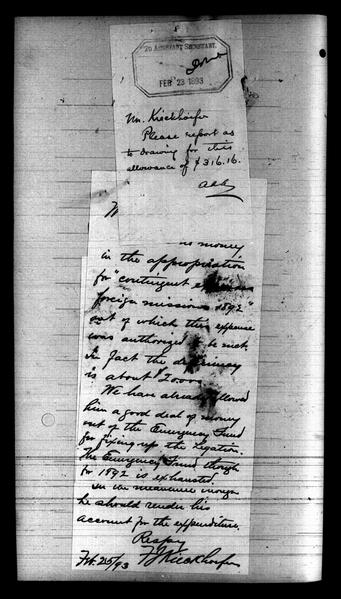 TO ASSISTANT SECRETARY.
FEB 23 1893
Mr. Kieckhoefer
Please report as
to drawing for this
allowance of $316.16.
no money
in the appropriation
for "contingent expenses
foreign missions 1892"
out of which this expense
was authorized to be met.
In fact the deficiency
is about
We have already allowed
him a good deal of money
out of the Emergency Fund
for fixing up the Legation.
The Emergency Fund though
for 1892 is exhausted.
In the meantime
he should render his
account for the expenditure.
Respy
Feb. 25/93 Kieckhoefer